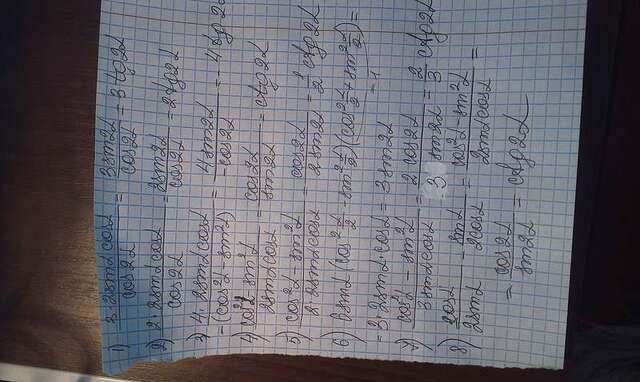 1) 3·2sinα cosα / cos2α = 3sin2α / cos2α = 3tg2α
2) 2·2sinα cosα / cos2α = 2sin2α / cos2α = 2tg2α
3) 4·2sinα cosα / -(cos²α - sin²α) = 4sin2α / -cos2α = -4tg2α
4) cos²α - sin²α / 2sinα cosα = cos2α / sin2α = ctg2α
5) cos²α - sin²α / 2·2sinα cosα = cos2α / 2sin2α = 1/2 ctg2α
6) 6sinα (cos²α/2 - sin²α/2)(cos²α/2 + sin²α/2) =
= 3·2sinα·cosα = 3sin2α
7) cos²α - sin²α / 3sinα cosα = 2cos2α / 3sin2α = 2/3 ctg2α
8) cosα / 2sinα - sinα / 2cosα = cos²α - sin²α / 2sinα cosα =
= cos2α / sin2α = ctg2α